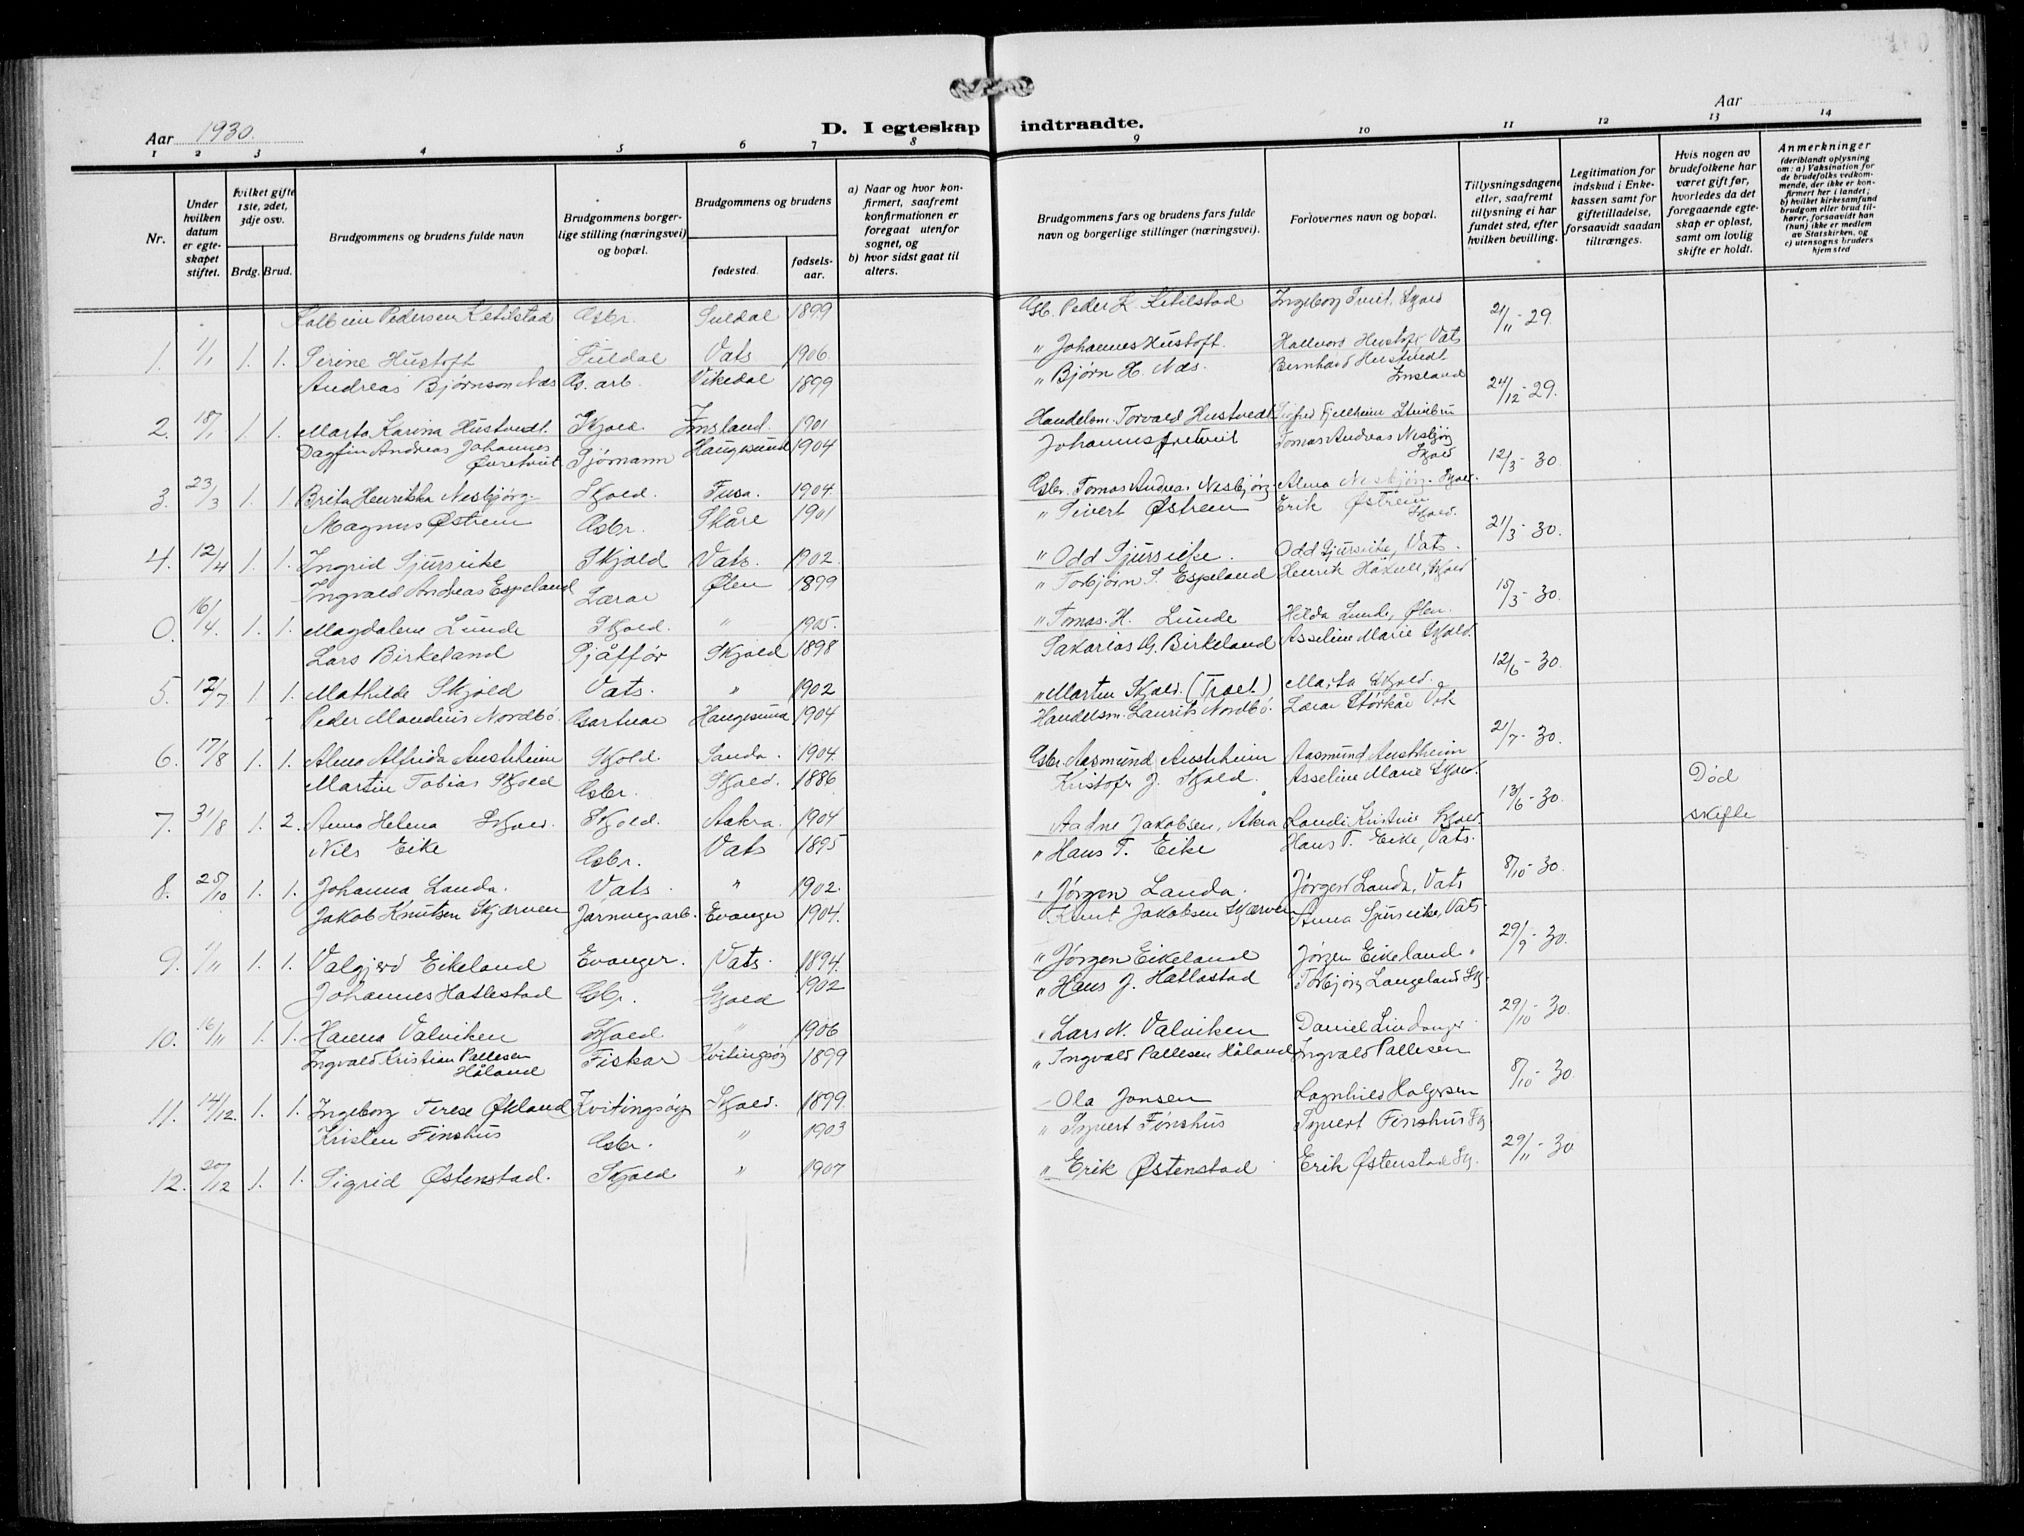 Aar 1930.
D. I egteskap indtraadte.
Aar
1 2 3 4 5 6 7 8 9 10 11 12 13 14
Nr.
Under hvilken datum er egteskapet stiftet.
hvilket gifte 1ste, 2det, 3dje osv.
Brdg. Brud.
Brudgommens og brudens fulde navn
Brudgommens borgerlige stilling (næringsvei) og bopæl.
Brudgommens og brudens
fødested. fødselsaar.
a) Naar og hvor konfirmert, saafremt konfirmationen er foregaat utenfor sognet, og
b) hvor sidst gaat til alters.
Brudgommens fars og brudens fars fulde navn og borgerlige stillinger (næringsvei).
Forlovernes navn og bopæl.
Tillysningsdagene eller, saafremt tillysning ei har fundet sted, efter hvilken bevilling.
Legitimation for indskud i Enkekassen samt for giftetilladelse, forsaavidt saadan tiltrænges.
Hvis nogen av brudefolkene har været gift før, hvorledes da det foregaaende egteskap er opløst, samt om lovlig skifte er holdt.
Anmerkninger
(deriblandt oplysning om: a) Vaksination for de brudefolks vedkommende, der ikke er konfirmert her i landet; b) hvilket kirkesamfund brudgom eller brud tilhører, forsaavidt han (hun) ikke er medlem av Statskirken, og c) utensogns bruders hjemsted
Kolbein Pedersen Ketilstad Gsbr. Suldal 1899 Gsb. Peder K. Ketilstad Ingeborg Tveit, Skjold 21/11 - 29.
1. 1/1 1. 1. Serine Hustoft Suldal Vats 1906. " Johannes Hustoft. Hallvors Hustoft Vats
Andreas Bjørnson Næs Gs. arb. Vikedal 1899 " Bjørn H. Næs. Bernhard Hustvedt Imsland 24/12 - 29.
2. 18/1 1. 1. Marta Karina Hustvedt. Skjold. Imsland. 1901 Handelsm. Torvald Hustvedt Sigfred Fjellheim
Dagfin Andreas Johannes Øvretveit Sjømann Haugesund 1904 Johannes Tomas Andreas Nesbjørg Skjold 12/3 - 30.
3. 23/3 1. 1. Brita Henrikka Nesbjørg. Skjold. Fusa. 1904. Gsbr. Tomas Andreas Nesbjørg. Alma Nesbjørg. Skjold.
Magnus Østrem Gsbr. Skåre 1901 " Sivert Østrem Erik Østrem Skjold. 21/3 - 30.
4. 12/4 1. 1. Ingrid Sjursvike Skjold Vats. 1902. " Odd Sjursvike. Odd Sjursvike, Vats.
Ingvald Andreas Espeland Lærar Ølen 1899 " Torbjørn S. Espeland Henrik Skjold 15/3 - 30.
0. 16/4. 1. 1. Magdalene Lunde Skjold. " 1905. " Tomas. H. Lunde Hilda Lunde, Ølen.
Lars Birkeland Sjåffør Skjold 1898 Sakarias G. Birkeland Asseline Marie Skjold. 12/6 - 30.
5. 12/7 1. 1. Mathilde Skjold Vats. " 1902 " Marten Skjold. (Traet.) Marta Skjold.
Peder Maudius Nordbø. Gartnar Haugesund 1904 Handelsm. Laurits Nordbø. Lærar Størkår Vik 21/7 - 30.
6. 17/8 1. 1. Alma Alfrida Austrheim Skjold. Sauda. 1904. Gsbr. Aasmund Austrheim Aasmund Austrheim
Martin Tobias Skjold Gsbr. Skjold. 1886 Kristofer J. Skjold. Asseline Marie Skjold. 13/6 - 30. Død
7. 31/8 1. 2. Anna Helena Skjold. Skjold. Aakra. 1904 Aadne Jakobsen, Akra Randi Kristine Skjold skifte
Nils Eike Gsbr. Vats 1895 " Hans T. Eike Hans T. Eike, Vats. 8/10 - 30.
8. 25/10 1. 1. Johanna Landa. Vats. " 1902. " Jørgen Landa. Jørgen Landa, Vats
Jakob Knutsen Skjerven Jarnvegsarb. Evanger 1904. Knut Jakobsen Skjerven Anna Sjursvike, Vats. 29/9 - 30.
9. 1/11 1. 1. Valgjerd Eikeland Evanger. Vats. 1894. " Jørgen Eikeland Jørgen Eikeland. "
Johannes Hatlestad Gsbr. Skjold 1902 " Hans J. Hatlestad Torbjørg Langeland Skj. 29/10 - 30.
10. 16/11 1. 1. Hanna Valviken Skjold " 1906 " Lars N. Valviken Daniel Lindanger
Ingvald Kristian Pallesen Håland Fiskar Kvitingsøy 1899 " Ingvald Pallesen Håland Ingvald Pallesen 8/10 - 30.
11. 14/12. 1. 1. Ingeborg Terese Økland Kvitingsøy Skjold. 1899. Ola Jonsen Ragnhild Holgersen
Kristen Finshus Gsbr. " 1903 " Syvert Finshus Syvert Finshus Skj. 29/11 - 30
12. 20/12 1. 1. Sigrid Østenstad. Skjold " 1907 " Erik Østenstad Erik Østenstad Skj.